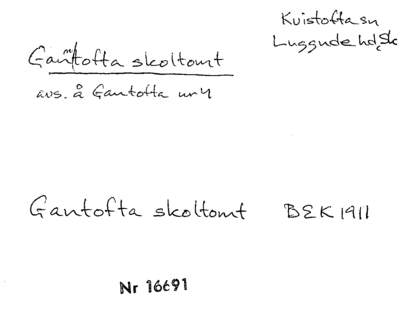 Kvistofta sn
Luggude hd, Sk
Gantofta skoltomt
avs. å Gantofta nr 4
Gantofta skoltomt BEK 1911
Nr 16691